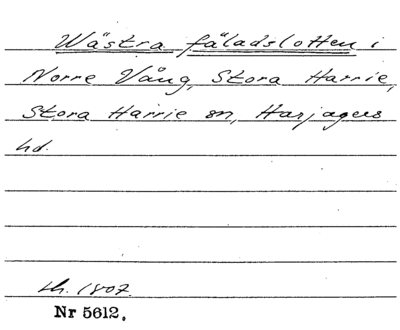 Wästra fäladslotten i
Norre Vång, Stora Harrie,
Stora Harrie sn, Harjagers
hd.
th. 1807.
Nr 5612.